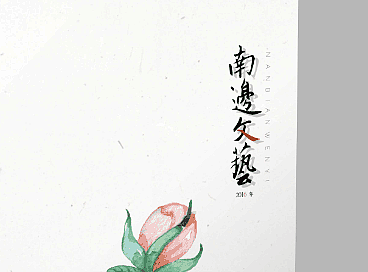 南邊文藝
NANBIANWENYI
2016 冬